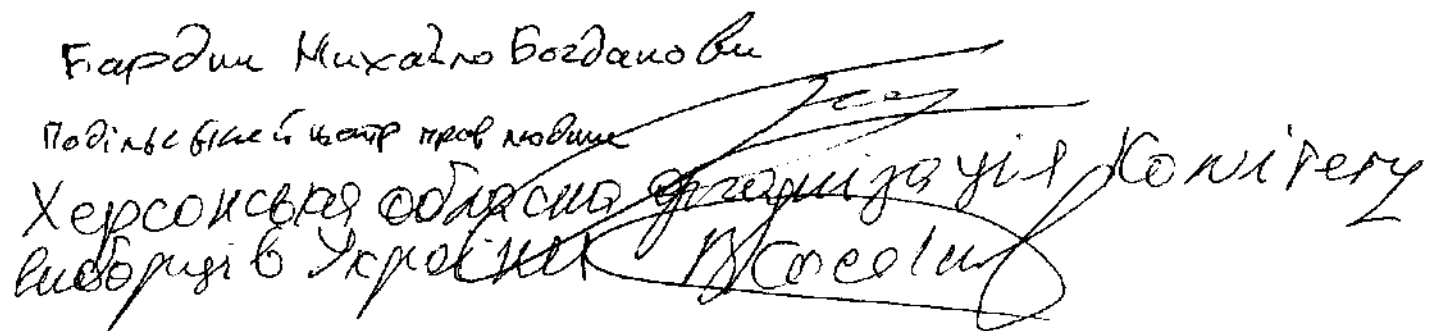 Бардин Михайло Богданови
Подільський центр прав людини
Херсонськая обласна організація Комітету
виборців України